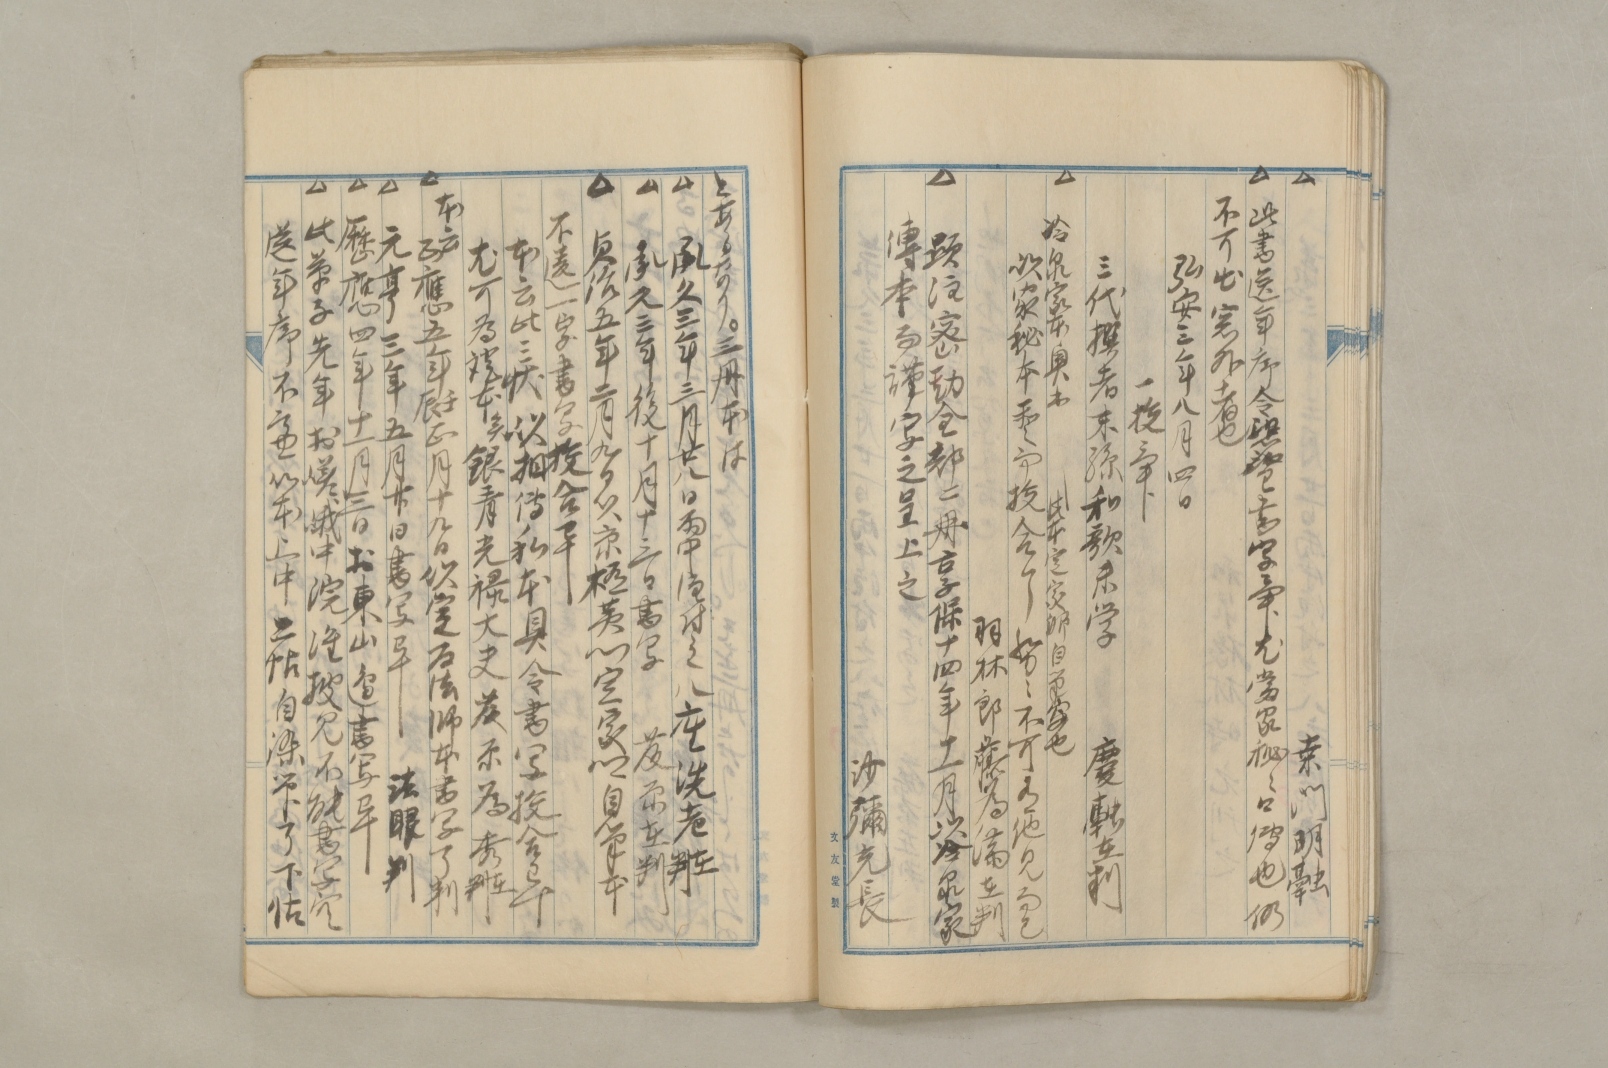 桒門明融
此書送年序令誂書写畢尤当家秘々口傳也仍
不可出窓外者也
弘安三年八月四日
一挍畢
三代撰者末孫和歌末学　慶融在判
冷泉家本奥书　此本定家卿自筆也
以家秘本重而挍合了努々不可有他見而已
羽林郎藤為満在判
顕注密勘全部二冊吉子保十四年十一月以冷泉家
傳本而謹写之呈上之
沙彌元長
文友堂製
とあるなり。三冊本は
承久三年三月廿八日雨中注付之八座洗老在判
承元三年後十月十三日書写　茂永在判
貞治五年二月九日以京極黄門定家卿自筆本
不違一字書写挍合畢
本云此三帖以相傳私本具令書写挍合已畢
尤可為證本矣銀青光禄大夫藤原為秀在判
本云
応應五年壬辰正月十九日以定為法師本書写了判
元亨三年五月廿日書写畢　法眼判
暦應四年十一月三日於東山邉書写畢
此草子先年於嵯峨中院雖披見不能書写空
送年序不慮以本上中二帖自染帋了下帖